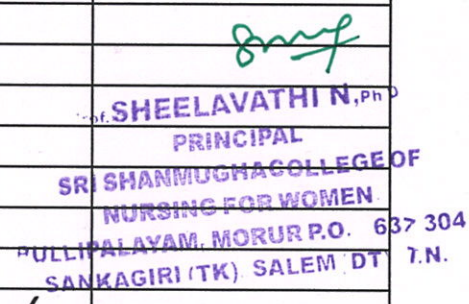 Prof. SHEELAVATHI N, Ph D
PRINCIPAL
SRI SHANMUGHA COLLEGE OF
NURSING FOR WOMEN
PULLIPALAYAM, MORUR P.O. 637 304
SANKAGIRI (TK) SALEM DT T.N.